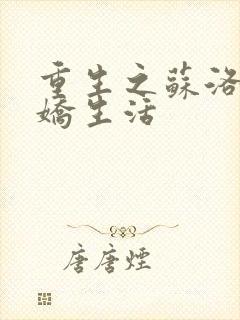 重生之蘇洛
嬌生活
唐唐煙